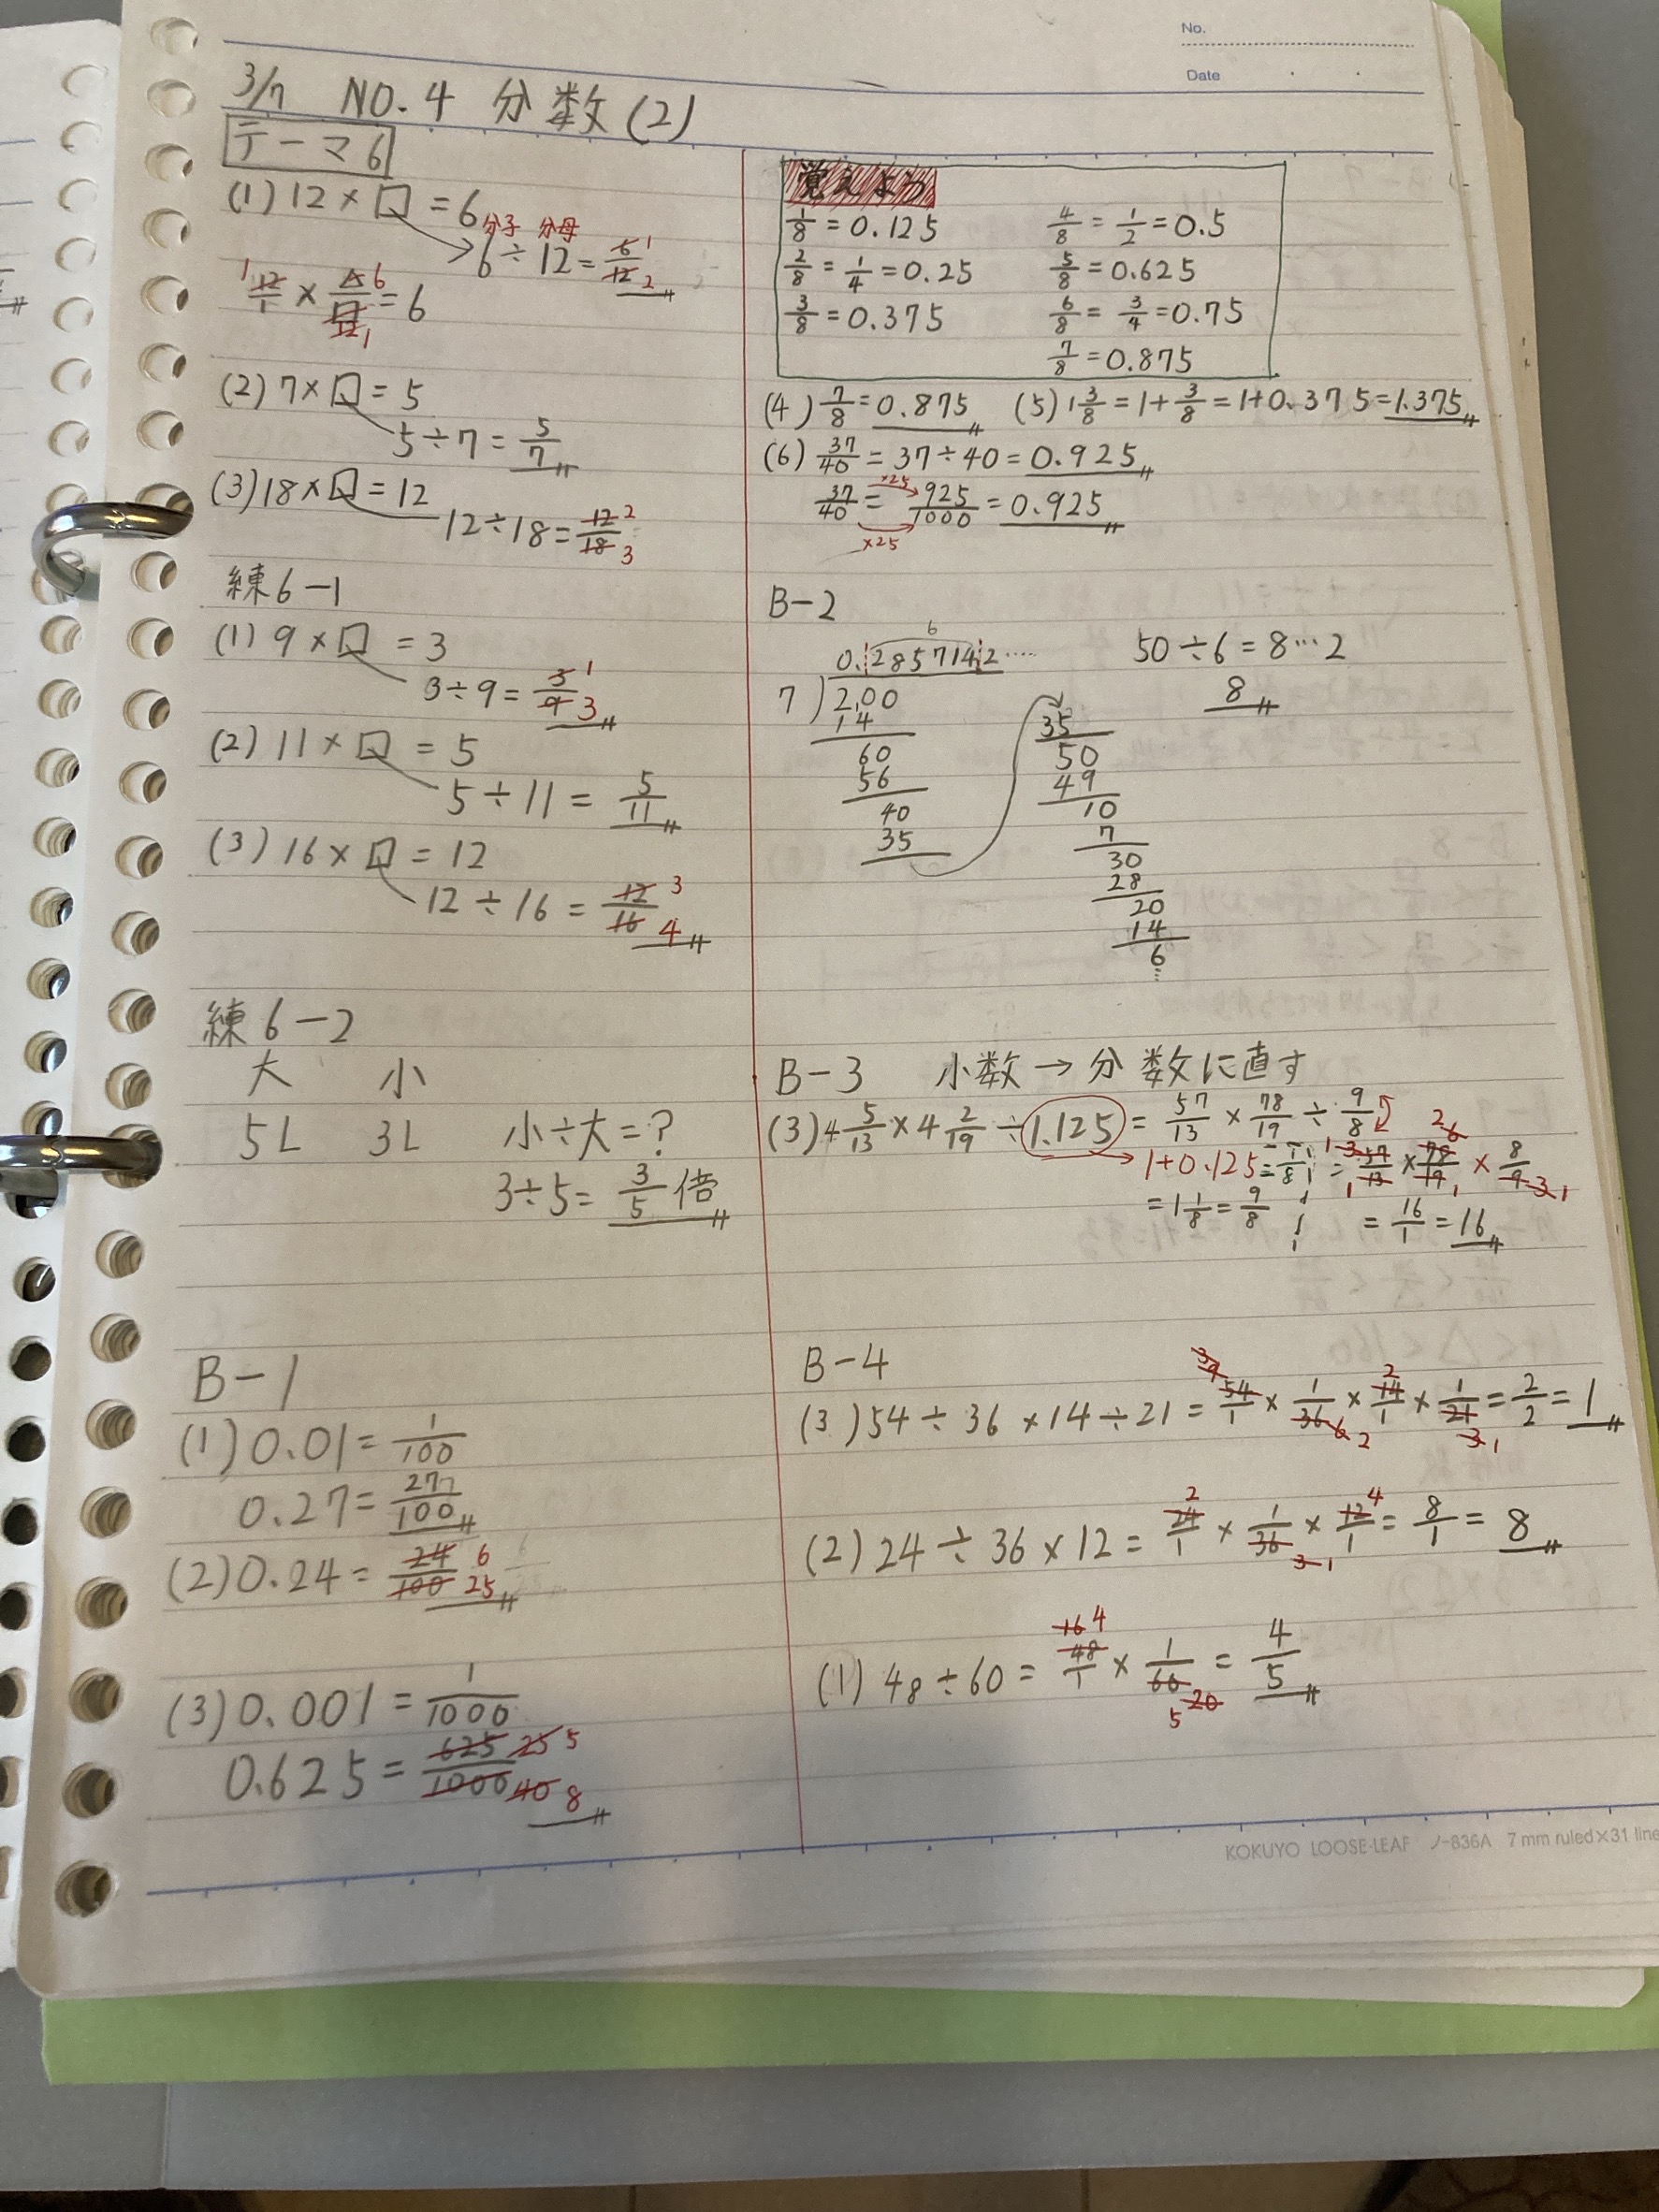 No.
Date
3/7 NO.4 分数(2)
テーマ6
(1) 12 × □ = 6
分子 分母
6 ÷ 12 = 6/12 1 2
1 12/1 × △/□ 6 = 6
12 1
(2) 7 × □ = 5
5 ÷ 7 = 5/7
(3) 18 × □ = 12
12 ÷ 18 = 12/18 2 3
練6-1
(1) 9 × □ = 3
3 ÷ 9 = 3/9 1 3
(2) 11 × □ = 5
5 ÷ 11 = 5/11
(3) 16 × □ = 12
12 ÷ 16 = 12/16 3 4
練6-2
大 小
5L 3L 小÷大=?
3÷5= 3/5 倍
B-1
(1) 0.01 = 1/100
0.27 = 27/100
(2) 0.24 = 24/100 6 25
(3) 0.001 = 1/1000
0.625 = 625/1000 25 5 40 8
覚えよう
1/8 = 0.125 4/8 = 1/2 = 0.5
2/8 = 1/4 = 0.25 5/8 = 0.625
3/8 = 0.375 6/8 = 3/4 = 0.75
7/8 = 0.875
(4) 7/8 = 0.875 (5) 1 3/8 = 1 + 3/8 = 1+0.375 = 1.375
(6) 37/40 = 37 ÷ 40 = 0.925
×25
37/40 = 925/1000 = 0.925
×25
B-2
6
0.2857142‥‥ 50 ÷ 6 = 8…2
7)2.00 8
14
60
56
40
35
35
50
49
10
7
30
28
20
14
6
B-3 小数→分数に直す
(3) 4 5/13 × 4 2/19 ÷ 1.125 = 57/13 × 78/19 ÷ 9/8
1+0.125 = 1 1/8 = 9/8
= 57/13 × 78/19 × 8/9
1 3 2 6 1 1 3 1
= 16/1 = 16
B-4
(3) 54 ÷ 36 × 14 ÷ 21 = 54/1 × 1/36 × 14/1 × 1/21 = 2/2 = 1
3 9 2
6 2 3 1
(2) 24 ÷ 36 × 12 = 24/1 × 1/36 × 12/1 = 8/1 = 8
2 4
3 1
(1) 48 ÷ 60 = 48/1 × 1/60 = 4/5
16 4
20
5
KOKUYO LOOSE-LEAF ノ-836A 7 mm ruled×31 line